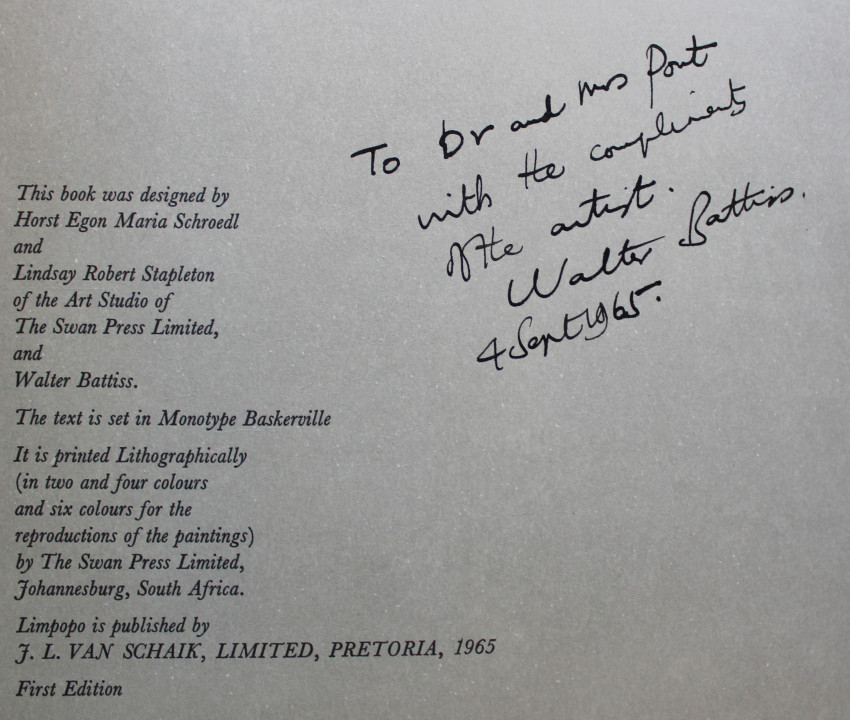 To Dr and Mrs Pont
with the compliments
of the artist.
Walter Battiss.
4 Sept 1965.
This book was designed by
Horst Egon Maria Schroedl
and
Lindsay Robert Stapleton
of the Art Studio of
The Swan Press Limited,
and
Walter Battiss.
The text is set in Monotype Baskerville
It is printed Lithographically
(in two and four colours
and six colours for the
reproductions of the paintings)
by The Swan Press Limited,
Johannesburg, South Africa.
Limpopo is published by
J. L. VAN SCHAIK, LIMITED, PRETORIA, 1965
First Edition